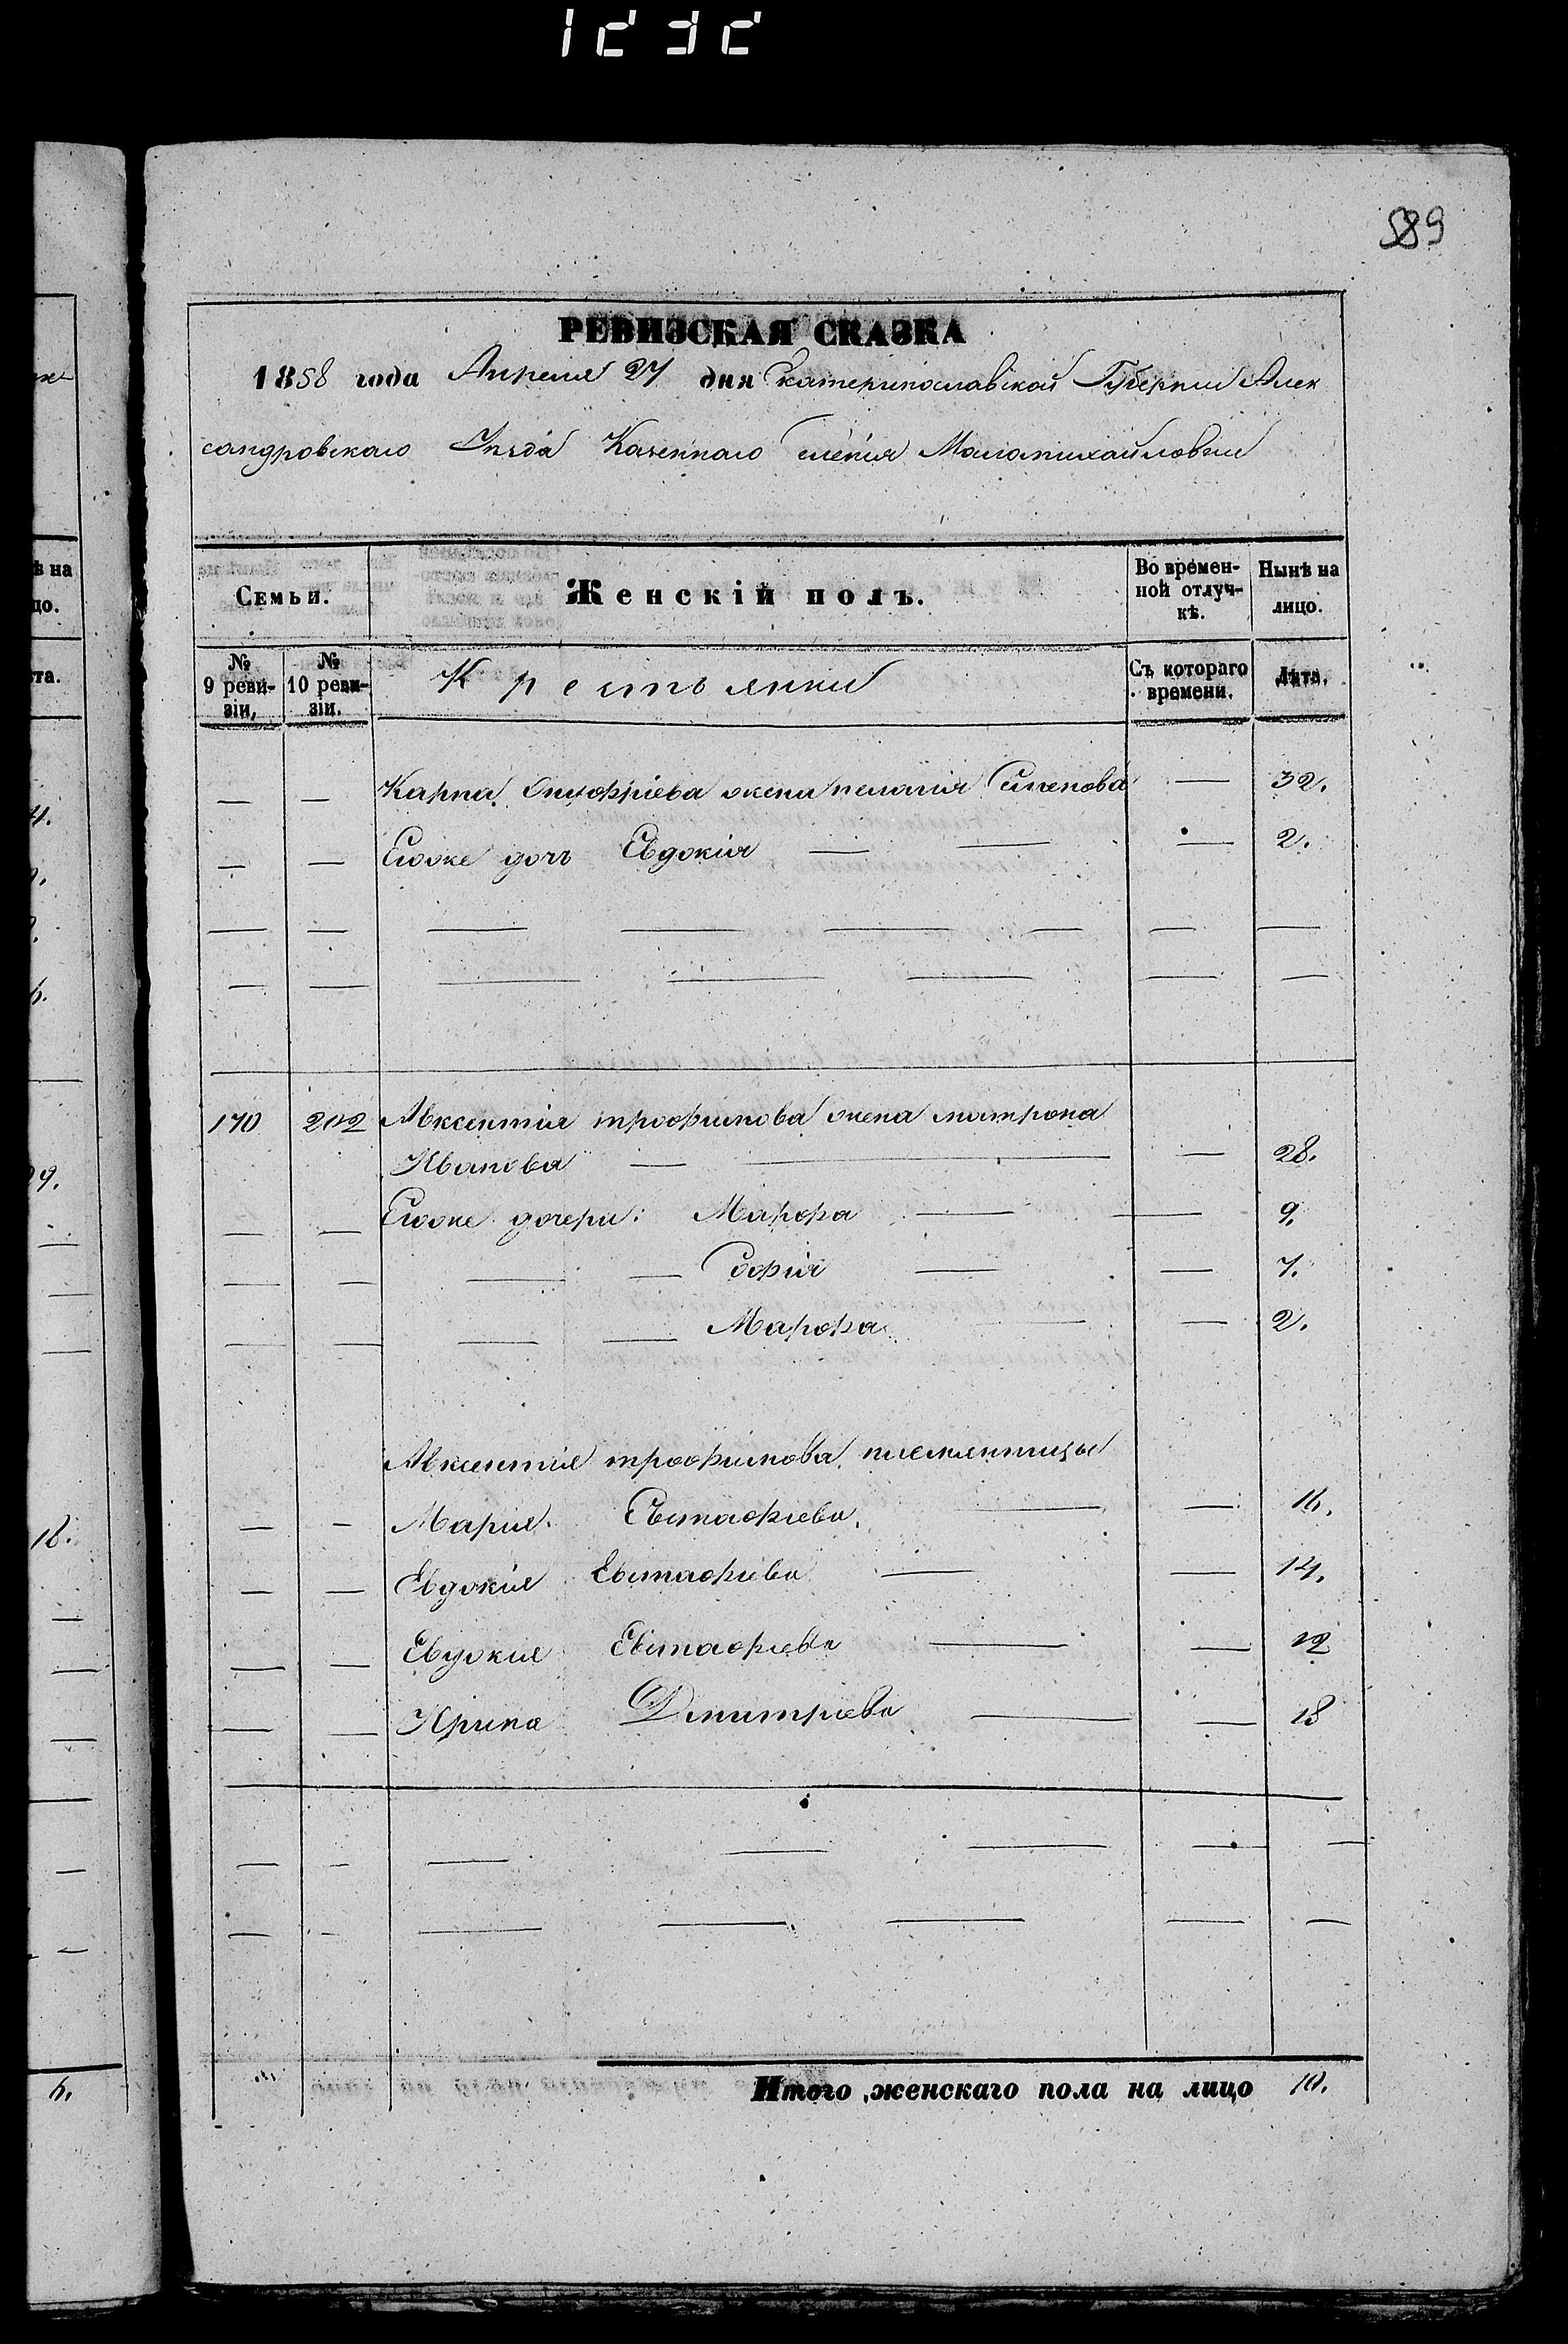 589
РЕВИЗСКАЯ СКАЗКА
1858 года Апреля 27 дня Екатеринославской Губернии Алек
сандровскаго Уѣзда Казеннаго селенія Маломихайловки
Семьи. Женскій полъ. Во времен-ной отлуч-кѣ. Нынѣ на лицо.
№ 9 реви-зіи, № 10 реви-зіи. Крестьянки Съ котораго времени. Лѣта.
— — Карпа Онуфріева жена пелагія Семенова — 32.
— — Егоже дочь Евдокія — — — 2.
170 202 Авксентія трофимова жена матрона
Иванова — — — 28.
— — Егоже дочери: Марфа — — 9.
— — — — Софія — — 7.
— — — — Марфа — — 2.
Авксентія трофимова племянницы
— — Марія Евстафіева — — 16.
— — Евдокія Евстафіева — — 14.
— — Евдокія Евстафіева — — 12
— — Ирина Дмитріева — — 18
Итого женскаго пола на лицо 10.